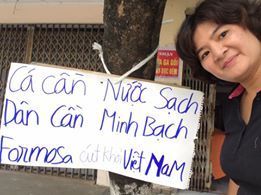 Cá cần Nước Sạch
Dân Cần Minh Bạch
Formosa cút khỏi Việt Nam